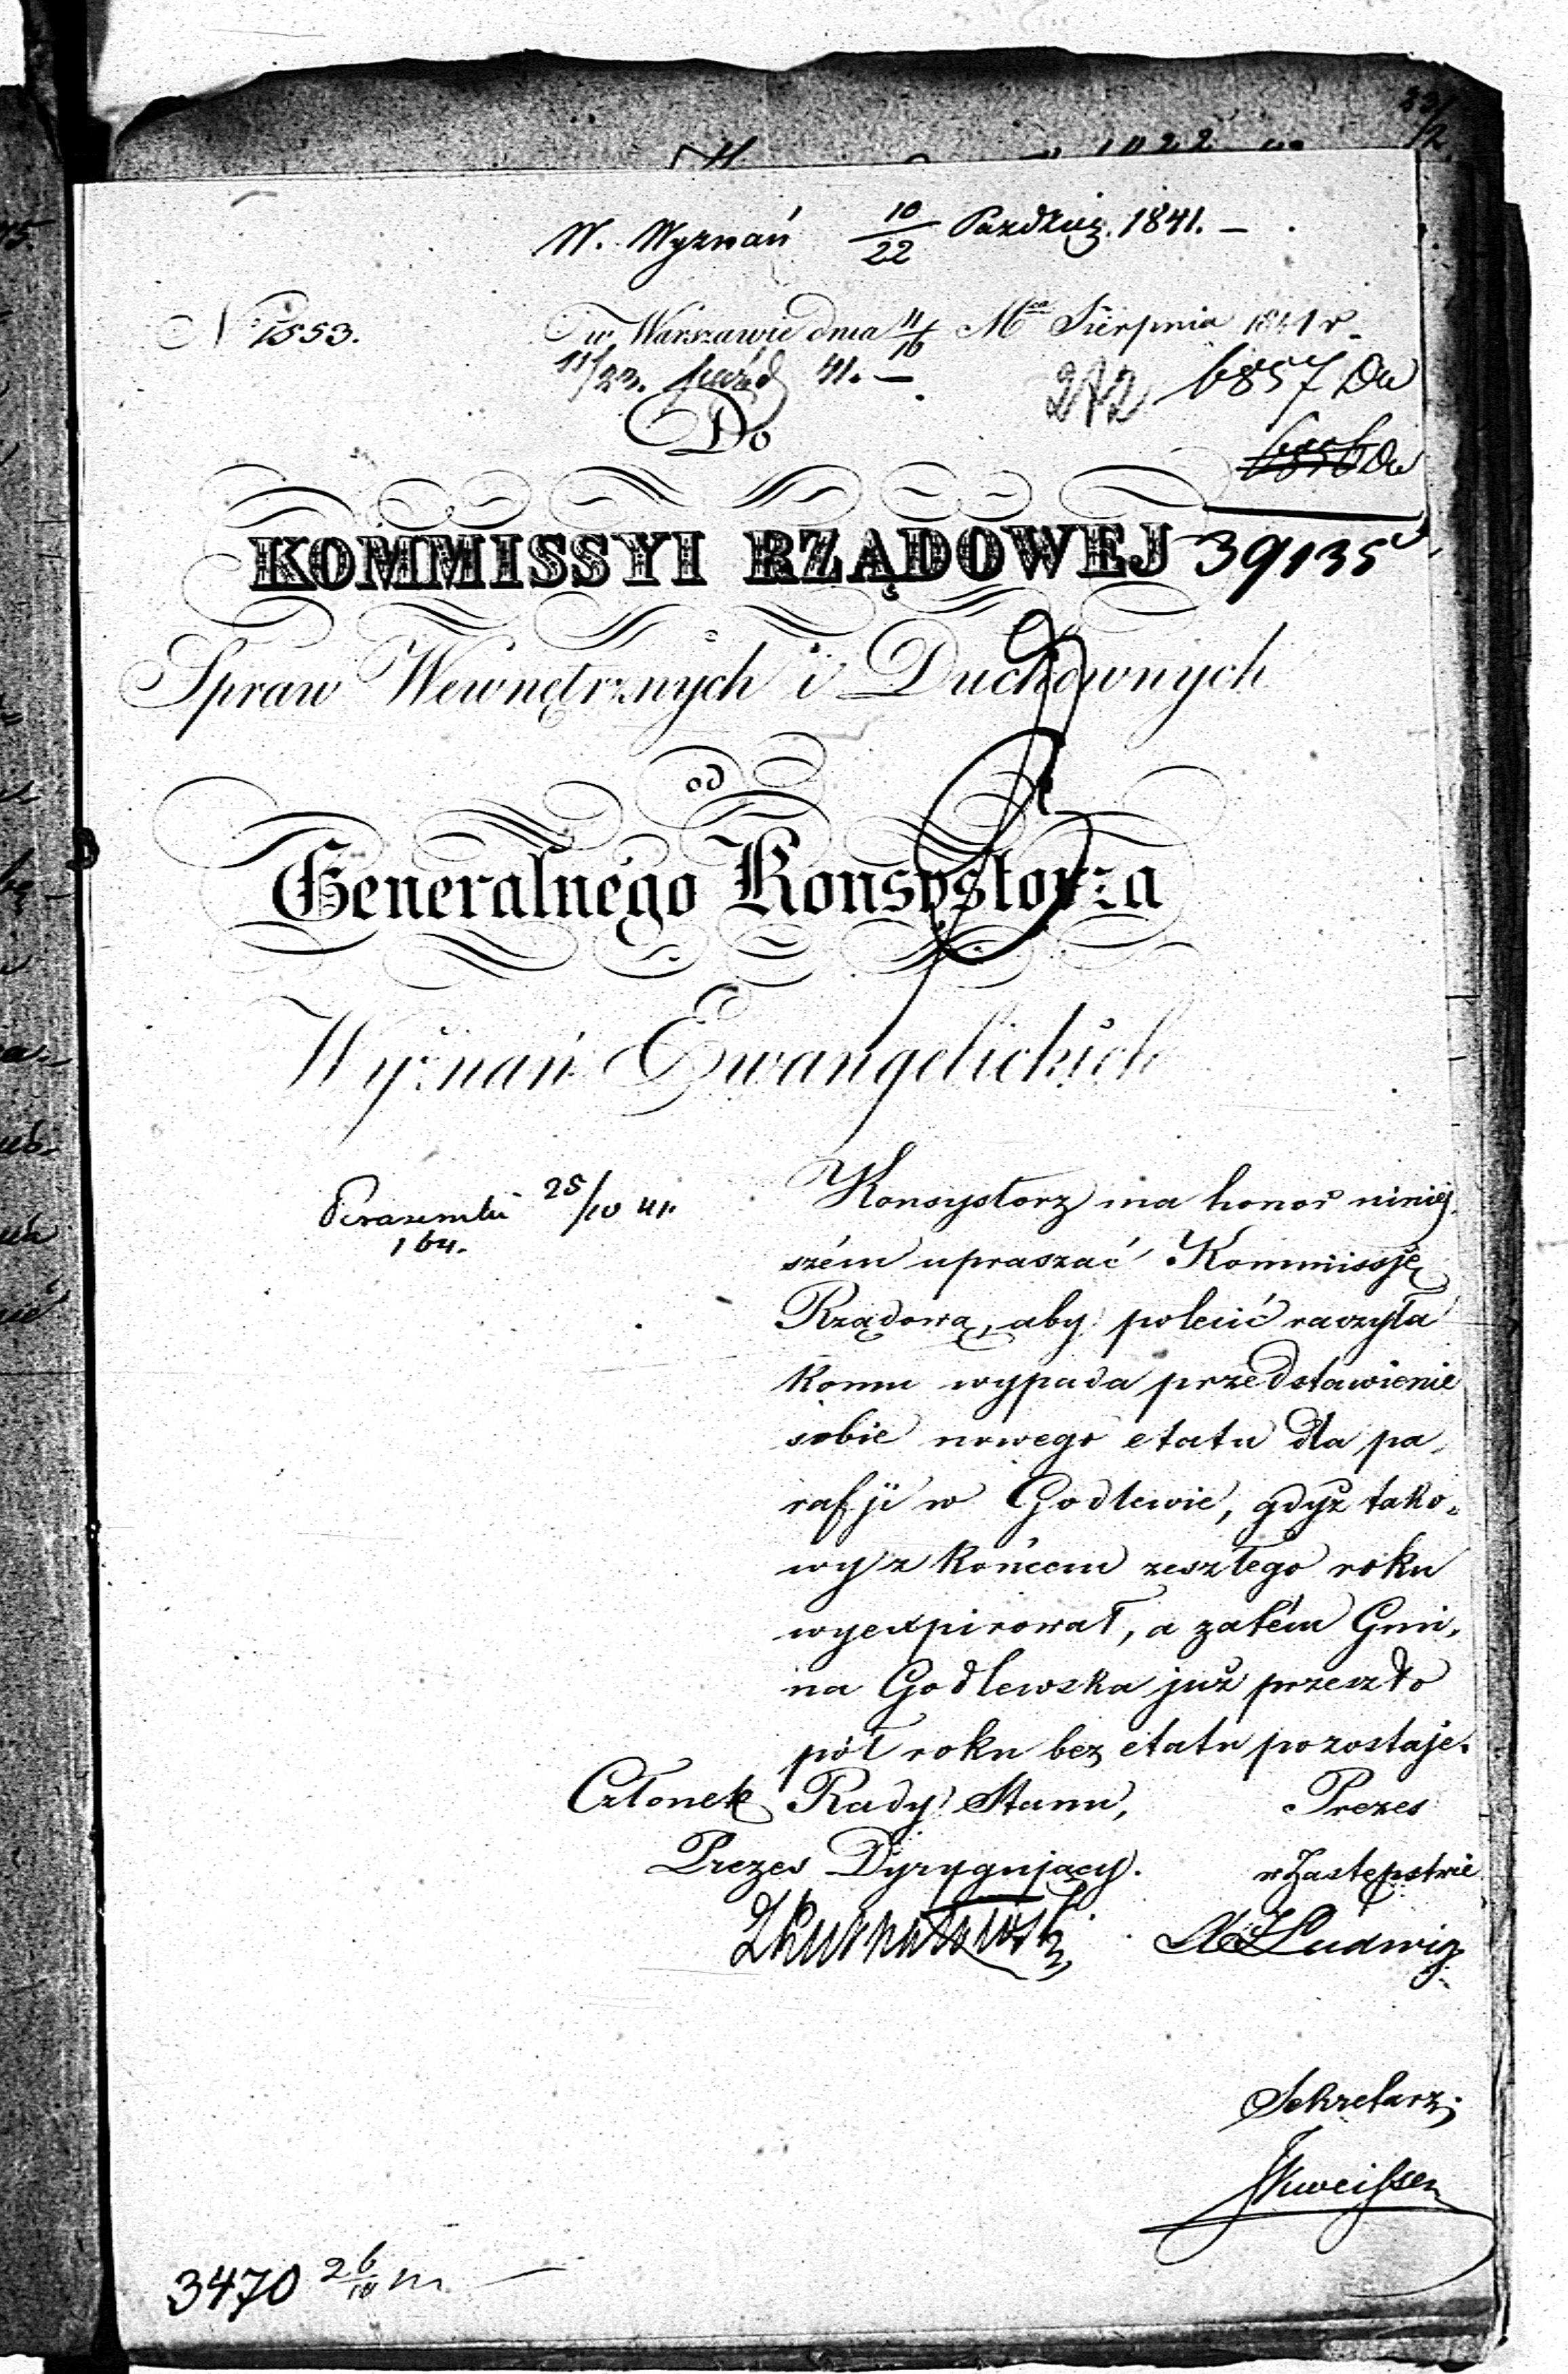 W. Wyznań 10/22 Paździer. 1841. –
N° 1553.
w Warszawie dnia 4/16 Mca Sierpnia 1841 r.
11/23. paźd 41. –
6857 Dw
Do
KOMMISSYI RZĄDOWEJ
39135
Spraw Wewnętrznych i Duchownych
od
Generalnego Konsystorza
Wyznań Ewangelickich
25/10 41.
164.
Konsystorz ma honor niniej
szém upraszać Kommissję
Rządową, aby polecić raczyła
komu wypada przedstawienie
sobie nowego etatu dla pa-
rafji w Godlewie, gdyż tako-
wy z końcem zeszłego roku
wyexpirował, a zatém Gmi-
na Godlewska już przeszło
pół roku bez etatu pozostaje.
Członek Rady Stanu,
Prezes Dyrygujący.
Prezes
w Zastępstwie
Ludwig
Sekretarz
3470